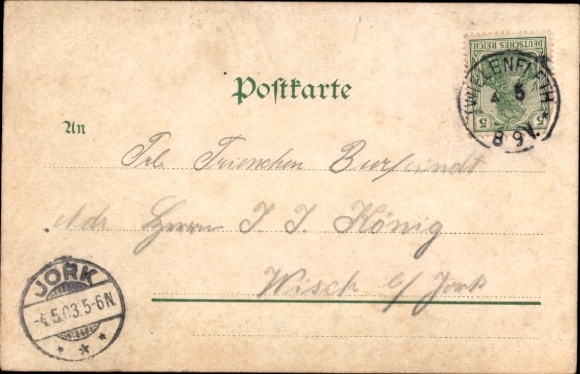 Postkarte
An
DEUTSCHES REICH
5 5
TWIELENFLETH
4 5
8 9V.
Frl. Trienchen Burfeindt
Adr. Herrn J. J. König
Wisch b/ Jork
JORK
-4.5.03.5-6N.